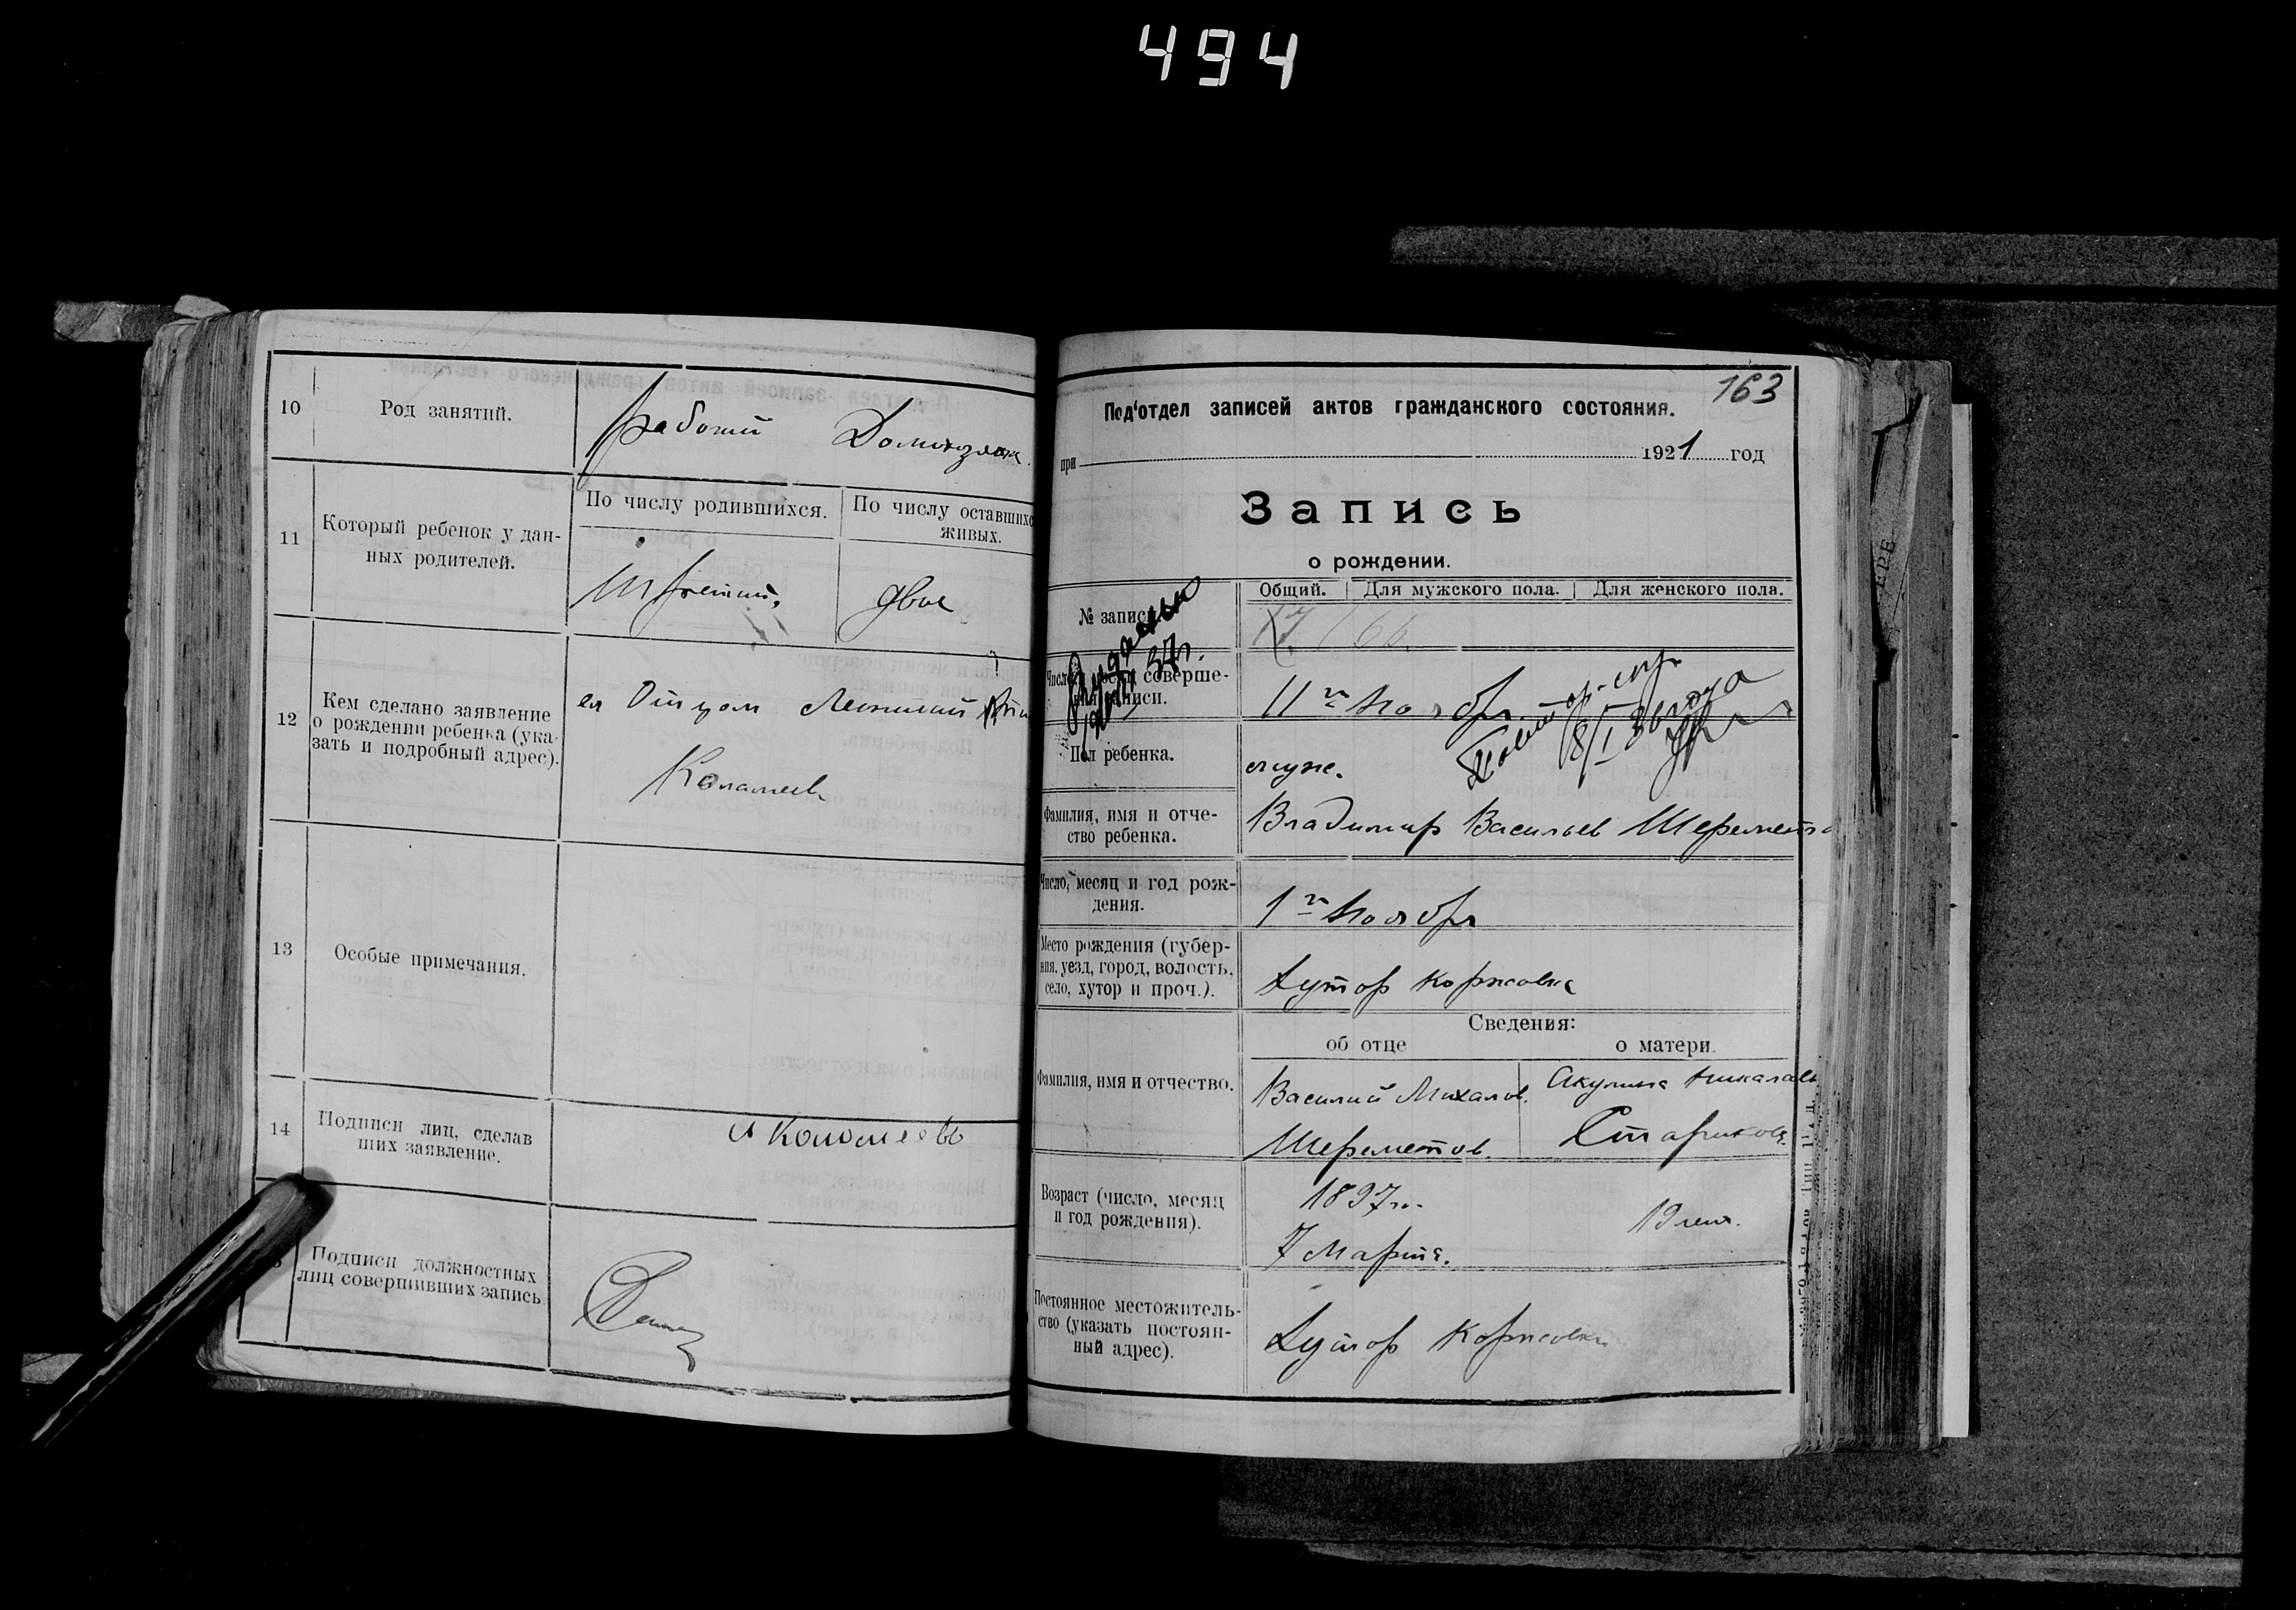 494
10
Род занятий.
рабочий
11
Который ребенок у дан-
ных родителей.
По числу родившихся.
По числу оставшихс
живых.
третий,
двое
12
Кем сделано заявление
о рождении ребенка (ука-
зать и подробный адрес).
Отцом
13
Особые примечания.
14
Подписи лиц, сделав
ших заявление.
Подписи должностных
лиц совершивших запись
163
Под‘отдел записей актов гражданского состояния.
при 1921 год
Запись
о рождении.
Общий. Для мужского пола. Для женского пола.
№ запис
11го Ноября
8/I
Пол ребенка.
муж.
Фамилия, имя и отче-
ство ребенка.
Владимир Васильев Шереметов
Число, месяц и год рож-
дения.
1го Ноября
Место рождения (губер-
ния, уезд, город, волость,
село, хутор и проч.).
Хутор Коржовка
Сведения:
об отце
о матери.
Фамилия, имя и отчество.
Василий Михалов.
Шереметов.
Акулина
Старикова.
Возраст (число, месяц
и год рождения).
1897г.
7 Марта.
19 лет.
Постоянное местожитель-
ство (указать постоян-
ный адрес).
Хутор Коржовка